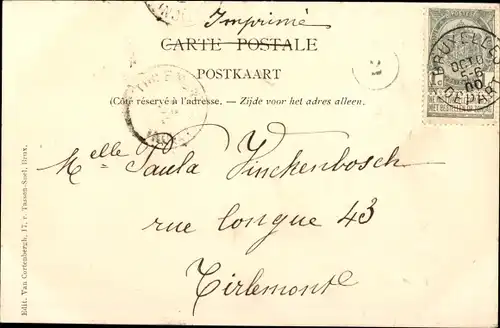 Imprimé
CARTE POSTALE
POSTKAART
(Côté réservé à l'adresse. — Zijde voor het adres alleen.
2
BRUXELLES
OCTO
5-6
00
DEPART
Melle Paula Vinckenbosch
rue longue 43
Tirlemont
Edit. Van Cortenbergh, 17, r. Tasson-Snel, Brux.